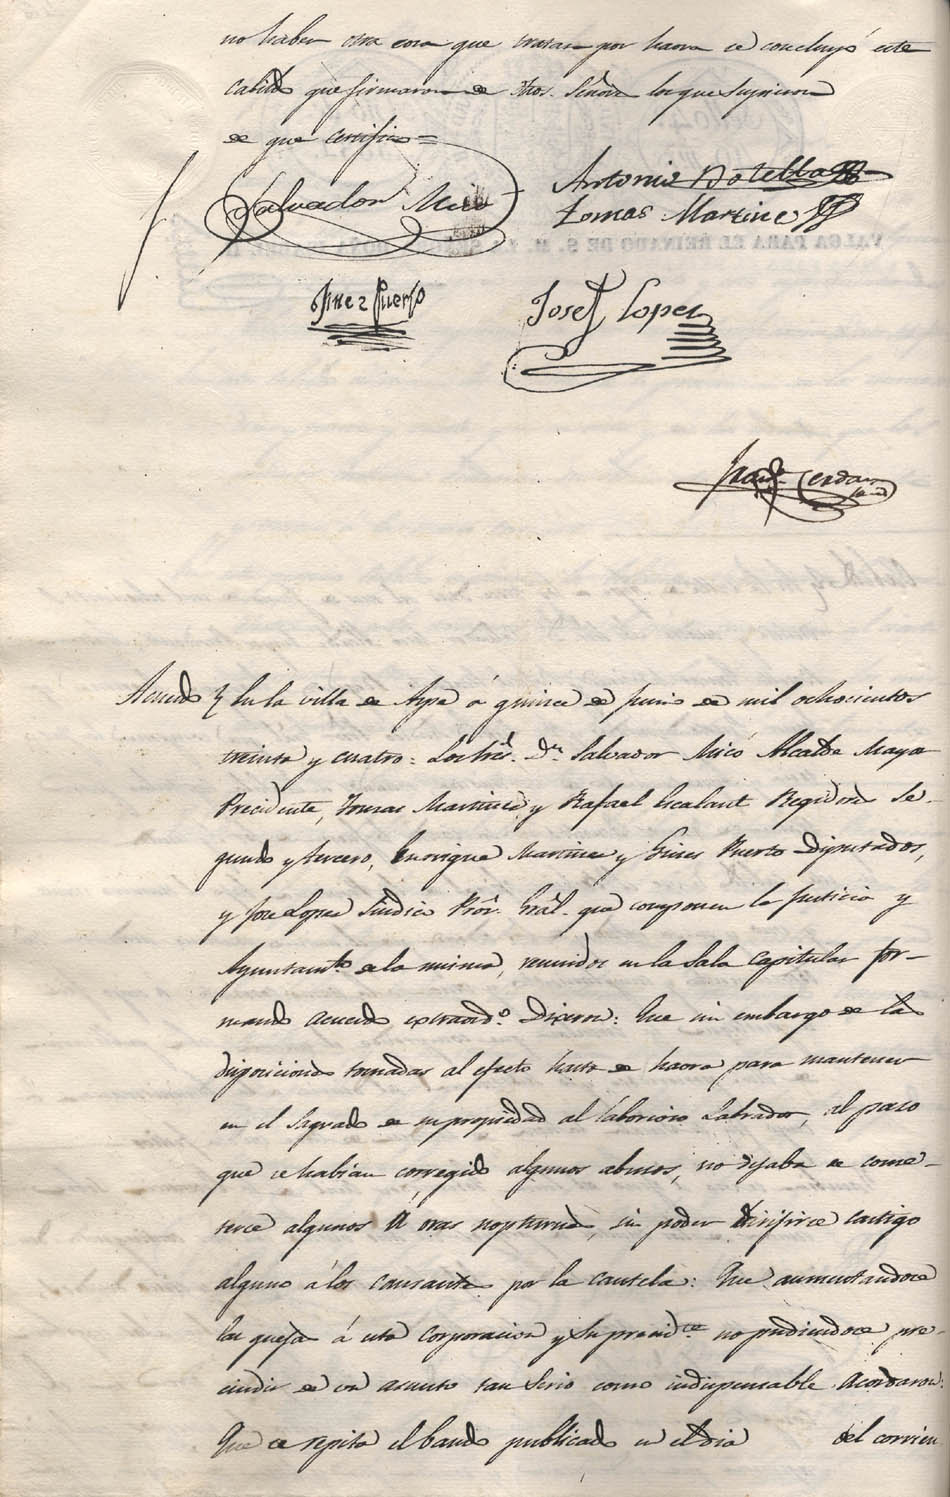 no haber otra cosa que tratar por haora se concluyó este
Cabildo que firmaron de dhos. Señores los que supieron
de que certifico =
Salvador Micó
Antonio Botella
Tomas Martine
Jinez Puerto
Josef Lopez
Cerdan
Acuerdo } En la villa de Aspe á quince de junio de mil ochocientos
treinta y cuatro: Los Sres. Dn. Salvador Micó Alcalde Mayor
Precidente, Tomas Martinez, y Rafael Escalant Regidores Se-
gundo y tercero, Enrrique Martinez y Gines Puerto Diputados,
y Jose Lopez Sindico Pror. Gral. que componen la Justicia y
Ayuntamto. de la misma, reunidos en la Sala Capitular for-
mando acuerdo extraordo. Dixeron: Que sin embargo de las
disposiciones tomadas al efecto hasta de haora para mantener
en el Sagrado de su propiedad al laborioso Labrador, al paso
que se habian corregido algunos abusos, no dejaba de come-
terce algunos á oras nopturnas, sin poder castigo
alguno á los causantes por la cautela: Que aumentandoce
las quejas á esta Corporacion y su precidte. no pudiendoce pre-
cindir de un asunto tan Serio como indispensable Acordaron:
Que se repita el bando publicado en el dia del corrien